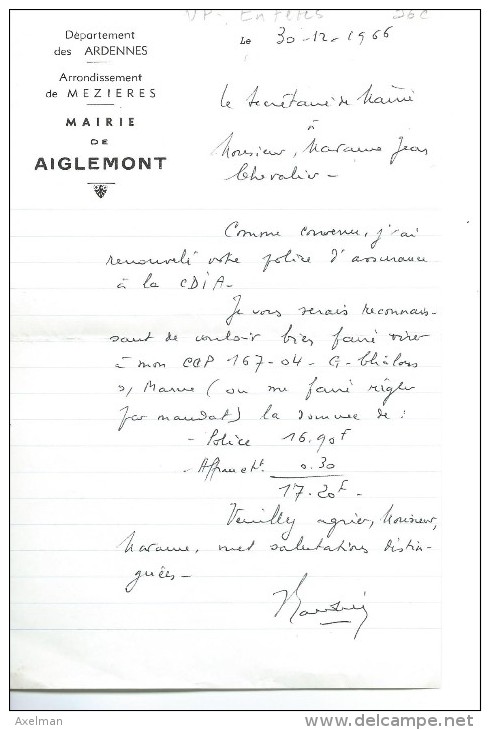 VP. En Têtes
Département
des ARDENNES
Arrondissement
de MEZIERES
MAIRIE
DE
AIGLEMONT
Le 30-12-1966
Le Secrétaire de Mairie
à
Monsieur, Madame Jean
Chevalier -
Comme convenu, j'ai
renouvelé votre police d'assurance
à la CDIA.
Je vous serais reconnais-
sant de vouloir bien faire virer
à mon CCP 167-04 - G - Châlons
s/ Marne (ou me faire régler
par mandat) la somme de :
- Police 16.90F
- Affrancht. 0.30
17.20F -
Veuillez agréer, Monsieur,
Madame, mes salutations distin-
guées -
Axelman
www.delcampe.net